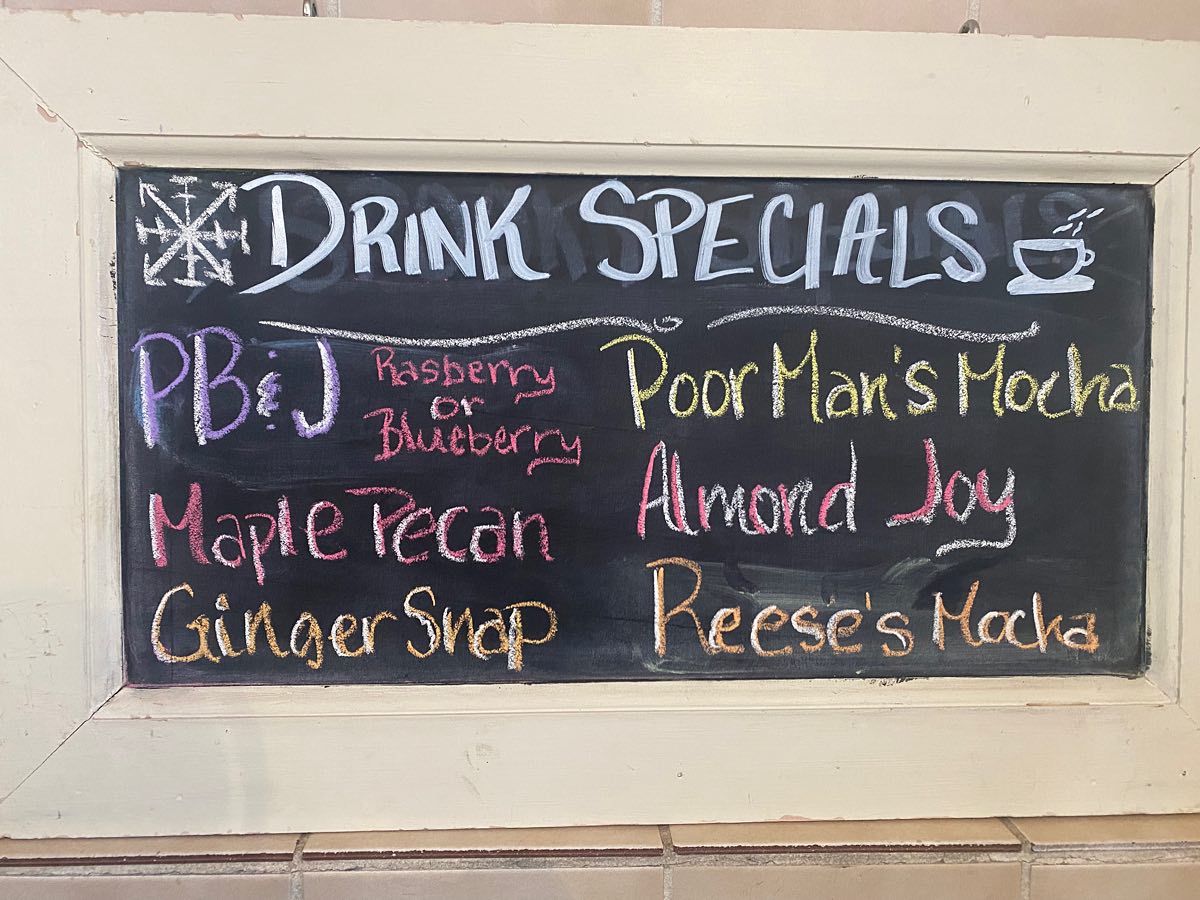 DRINK SPECIALS
PB&J
Rasberry
or
Blueberry
Maple Pecan
Ginger Snap
Poor Man's Mocha
Almond Joy
Reese's Mocha